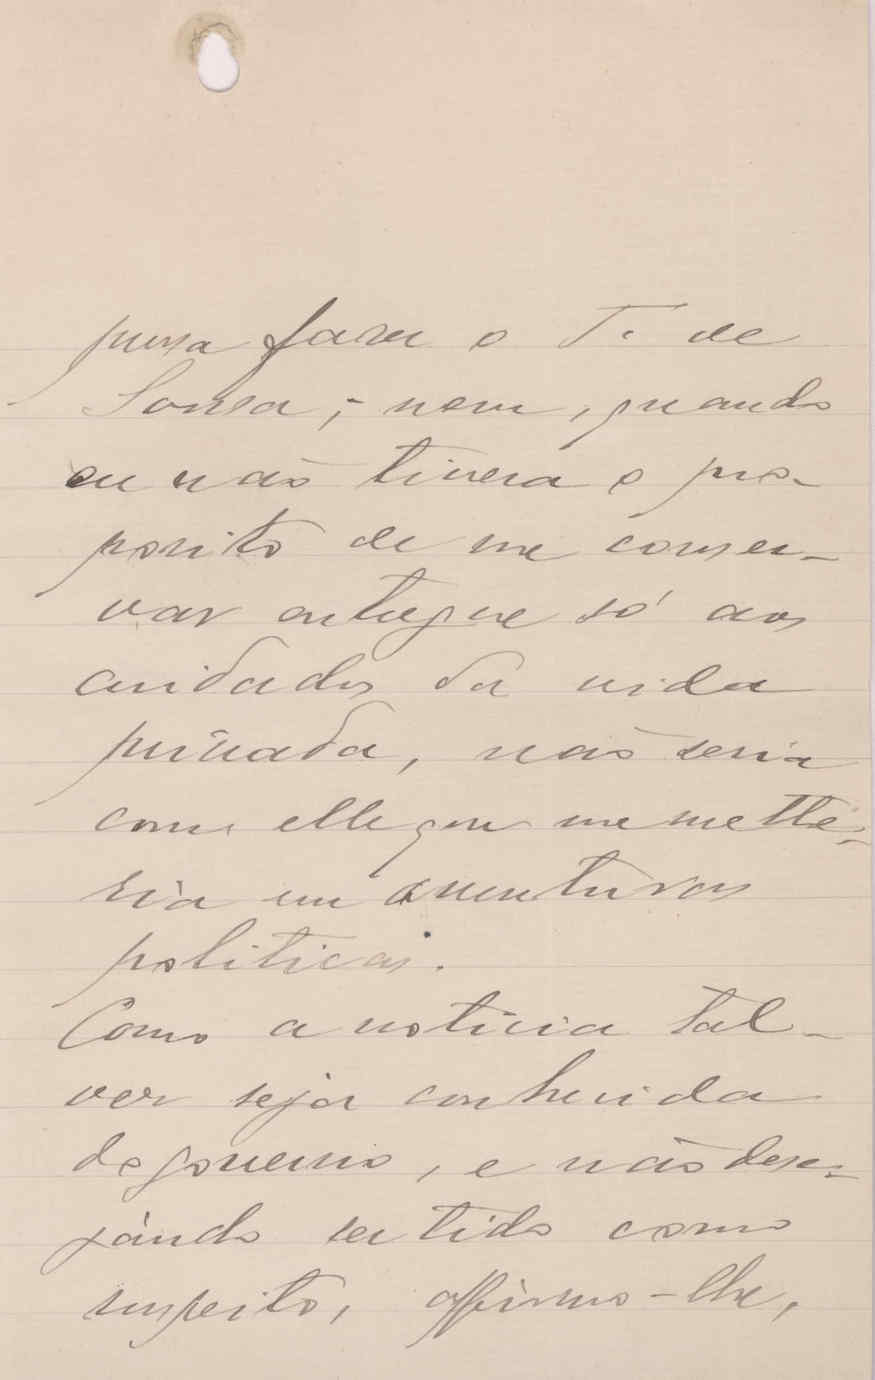 possa fazer o T. de
Souza, - nem, quando
eu não tivera o pro-
posito de me conser-
var entregue só aos
cuidados da vida
privada, não seria
com elle que me mette-
ria em aventuras
politicas.
Como a noticia tal-
vez seja conhecida
do governo, e não dese-
jando ser tido como
suspeito, affirmo-lhe,